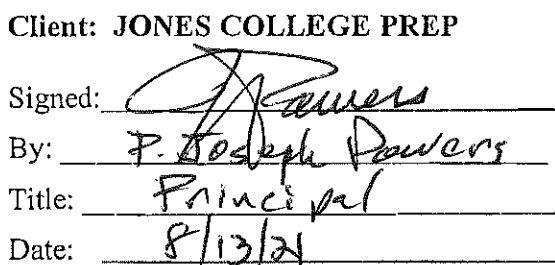 Client: JONES COLLEGE PREP
Signed: Powers
By: P. Joseph Powers
Title: Principal
Date: 8/13/21